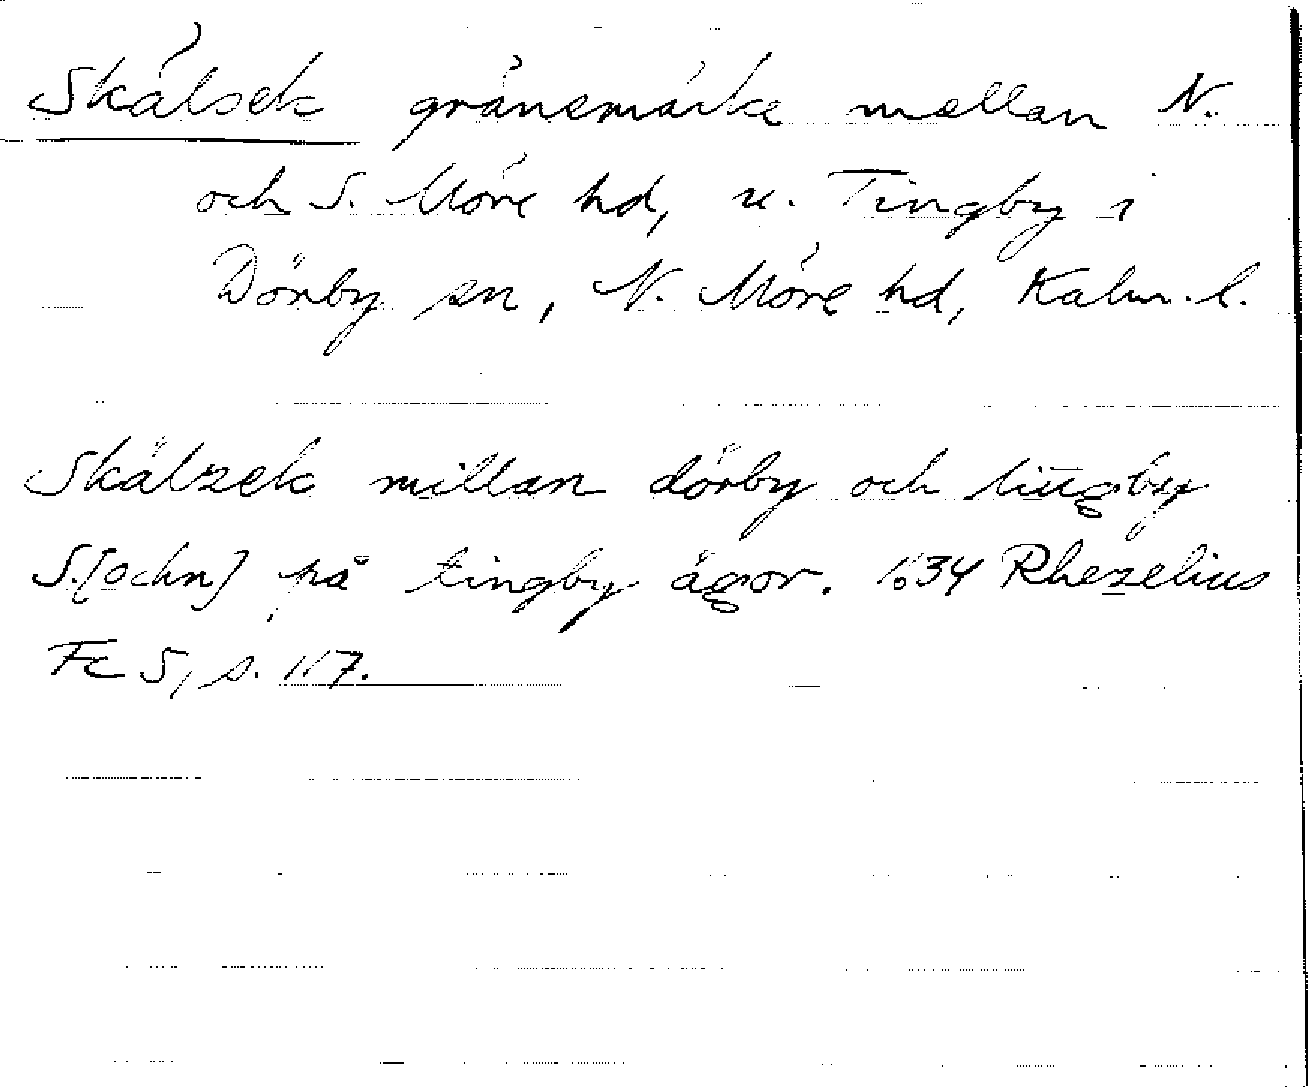 Skälsek gränsmärke mellan N.
och S. Möre hd, u. Tingby i
Dörby sn, N. Möre hd, Kalm. l.
Skälzek millan dörby och liūgby
S.[ochn] på tingby ägor. 1634 Rhezelius
Fc 5, s. 117.